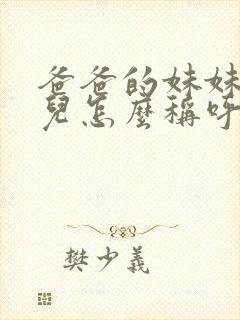 爸爸的妹妹
兒怎麼稱呼
樊少義